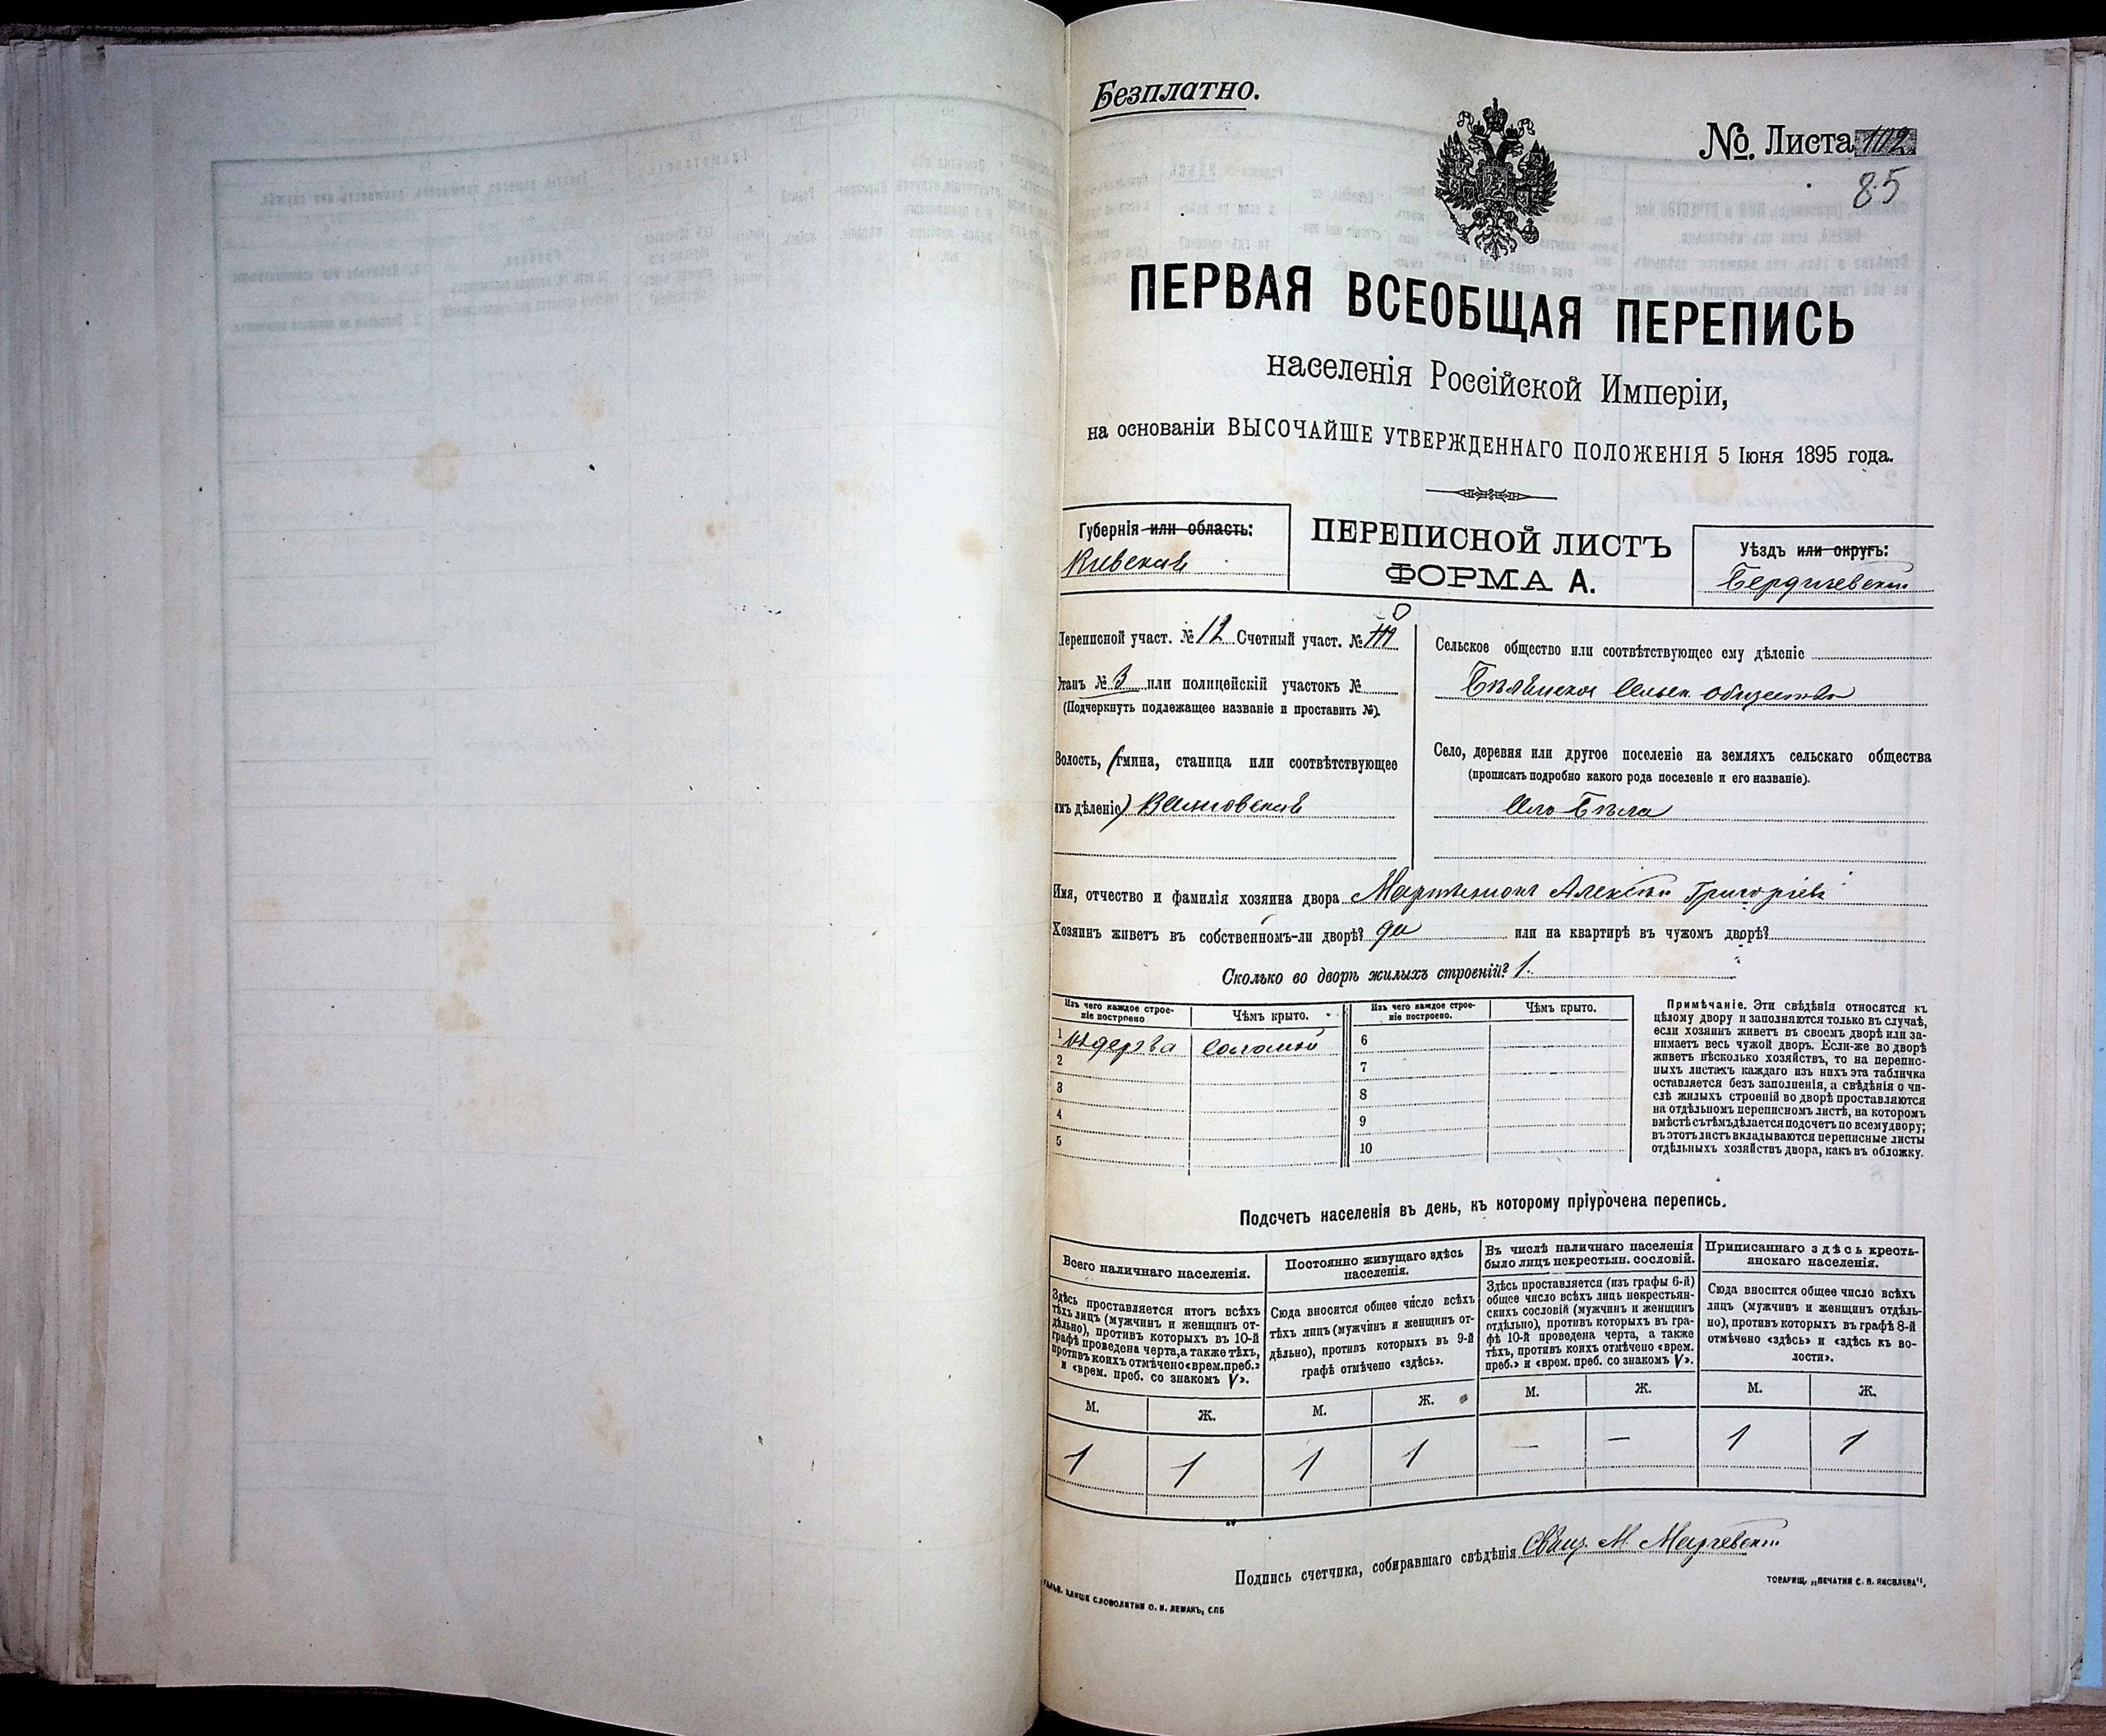 Безплатно.
№ Листа 112
85
ПЕРВАЯ ВСЕОБЩАЯ ПЕРЕПИСЬ
населенія Россійской Имперіи,
на основаніи ВЫСОЧАЙШЕ УТВЕРЖДЕННАГО ПОЛОЖЕНІЯ 5 Іюня 1895 года.
Губернія или область:
Кіевская
ПЕРЕПИСНОЙ ЛИСТЪ
ФОРМА А.
Уѣздъ или округъ:
Бердичевскій
Переписной участ. № 12 Счетный участ. №
Станъ № 3 или полицейскій участокъ №
(Подчеркнуть подлежащее названіе и проставить №).
Волость, (гмина, станица или соотвѣтствующее
имъ дѣленіе)
Сельское общество или соотвѣтствующее ему дѣленіе
Сельск. общество
Село, деревня или другое поселеніе на земляхъ сельскаго общества
(прописать подробно какого рода поселеніе и его названіе).
Село Бѣла
Имя, отчество и фамилія хозяина двора Алексѣй Григоріевъ
Хозяинъ живетъ въ собственномъ-ли дворѣ? да или на квартирѣ въ чужомъ дворѣ?
Сколько во дворѣ жилыхъ строеній? 1.
Изъ чего каждое строеніе построено
Чѣмъ крыто.
Изъ чего каждое строеніе построено.
Чѣмъ крыто.
1 Изъ дерева соломой
2
3
4
5
6
7
8
9
10
Примѣчаніе. Эти свѣдѣнія относятся къ
цѣлому двору и заполняются только въ случаѣ,
если хозяинъ живетъ въ своемъ дворѣ или за-
нимаетъ весь чужой дворъ. Если-же во дворѣ
живетъ нѣсколько хозяйствъ, то на перепис-
ныхъ листахъ каждаго изъ нихъ эта табличка
оставляется безъ заполненія, а свѣдѣнія о чи-
слѣ жилыхъ строеній во дворѣ проставляются
на отдѣльномъ переписномъ листѣ, на которомъ
вмѣстѣ съ тѣмъ дѣлается подсчетъ по всему двору;
въ этотъ листъ вкладываются переписные листы
отдѣльныхъ хозяйствъ двора, какъ въ обложку.
Подсчетъ населенія въ день, къ которому пріурочена перепись.
Всего наличнаго населенія.
Здѣсь проставляется итогъ всѣхъ
тѣхъ лицъ (мужчинъ и женщинъ от-
дѣльно), противъ которыхъ въ 10-й
графѣ проведена черта, а также тѣхъ,
противъ коихъ отмѣчено «врем. преб.»
и «врем. преб. со знакомъ V».
Постоянно живущаго здѣсь
населенія.
Сюда вносится общее число всѣхъ
тѣхъ лицъ (мужчинъ и женщинъ от-
дѣльно), противъ которыхъ въ 9-й
графѣ отмѣчено «здѣсь».
Въ числѣ наличнаго населенія
было лицъ некрестьян. сословій.
Здѣсь проставляется (изъ графы 6-й)
общее число всѣхъ лицъ некрестьян-
скихъ сословій (мужчинъ и женщинъ
отдѣльно), противъ которыхъ въ гра-
фѣ 10-й проведена черта, а также
тѣхъ, противъ коихъ отмѣчено «врем.
преб.» и «врем. преб. со знакомъ V».
Приписаннаго здѣсь кресть-
янскаго населенія.
Сюда вносится общее число всѣхъ
лицъ (мужчинъ и женщинъ отдѣль-
но), противъ которыхъ въ графѣ 8-й
отмѣчено «здѣсь» и «здѣсь къ во-
лости».
М. Ж. М. Ж. М. Ж. М. Ж.
1 1 1 1 — — 1 1
Подпись счетчика, собиравшаго свѣдѣнія Свящ. М.
КЛИШЕ СЛОВОЛИТНИ О. И. ЛЕМАНЪ, СПБ
ТОВАРИЩ. „ПЕЧАТНЯ С. П. ЯКОВЛЕВА“,